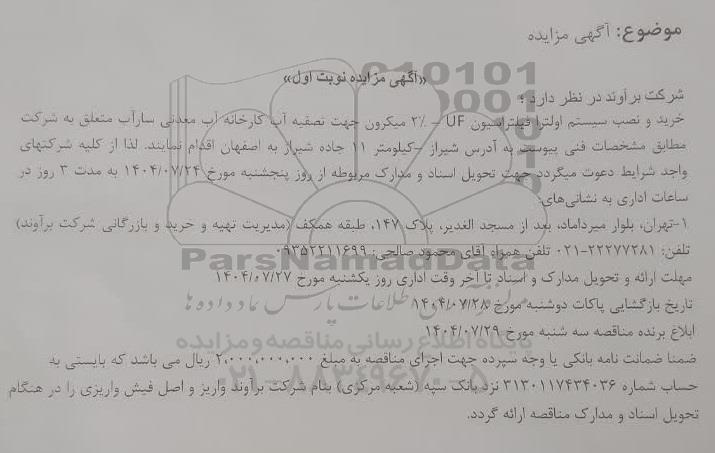 موضوع: آگهی مزایده
«آگهی مزایده نوبت اول»
شرکت برآوند در نظر دارد ؛
خرید و نصب سیستم اولترا فیلتراسیون UF – ۲٪ میکرون جهت تصفیه آب کارخانه آب معدنی سارآب متعلق به شرکت
مطابق مشخصات فنی پیوست به آدرس شیراز –کیلومتر ۱۱ جاده شیراز به اصفهان اقدام نمایند. لذا از کلیه شرکتهای
واجد شرایط دعوت میگردد جهت تحویل اسناد و مدارک مربوطه از روز پنجشنبه مورخ ۱۴۰۴/۰۷/۲۴ به مدت ۳ روز در
ساعات اداری به نشانی‌های:
۱-تهران، بلوار میرداماد، بعد از مسجد الغدیر، پلاک ۱۴۷، طبقه همکف (مدیریت تهیه و خرید و بازرگانی شرکت برآوند)
تلفن: ۲۲۲۷۷۲۸۱-۰۲۱ تلفن همراه آقای محمود صالحی: ۰۹۳۵۲۲۱۱۶۹۹
مهلت ارائه و تحویل مدارک و اسناد تا آخر وقت اداری روز یکشنبه مورخ ۱۴۰۴/۰۷/۲۷
تاریخ بازگشایی پاکات دوشنبه مورخ ۱۴۰۴/۰۷/۲۸
ابلاغ برنده مناقصه سه شنبه مورخ ۱۴۰۴/۰۷/۲۹
ضمنا ضمانت نامه بانکی یا وجه سپرده جهت اجرای مناقصه به مبلغ ۲،۰۰۰،۰۰۰،۰۰۰ ریال می باشد که بایستی به
حساب شماره ۳۱۳۰۱۱۷۴۳۴۰۳۶ نزد بانک سپه (شعبه مرکزی) بنام شرکت برآوند واریز و اصل فیش واریزی را در هنگام
تحویل اسناد و مدارک مناقصه ارائه گردد.
ParsNamadData
پایگاه اطلاع رسانی مناقصه و مزایده
۰۲۱-۸۸۳۴۹۶۷۰-۵